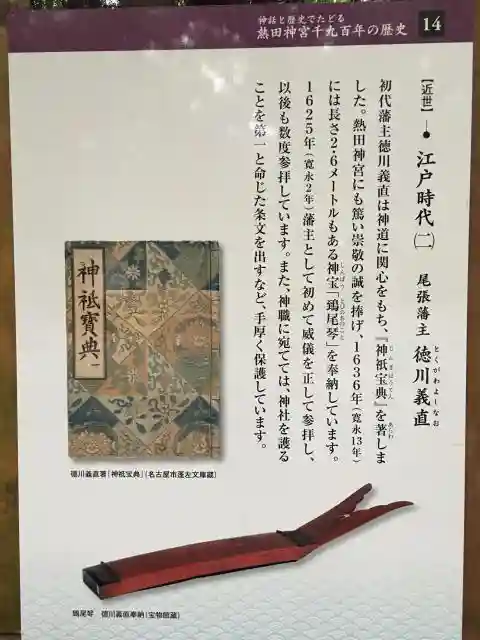 神話と歴史でたどる
熱田神宮千九百年の歴史
14
【近世】
江戸時代(二) 尾張藩主 徳川義直
とくがわよしなお
初代藩主徳川義直は神道に関心をもち、『神祇宝典』を著しま
した。熱田神宮にも篤い崇敬の誠を捧げ、1636年(寛永13年)
には長さ2・6メートルもある神宝「鵄尾琴」を奉納しています。
1625年(寛永2年)藩主として初めて威儀を正して参拝し、
以後も数度参拝しています。また、神職に宛てては、神社を護る
ことを第一と命じた条文を出すなど、手厚く保護しています。
神祇寳典 一
徳川義直著「神祇宝典」(名古屋市蓬左文庫蔵)
鵄尾琴 徳川義直奉納(宝物館蔵)